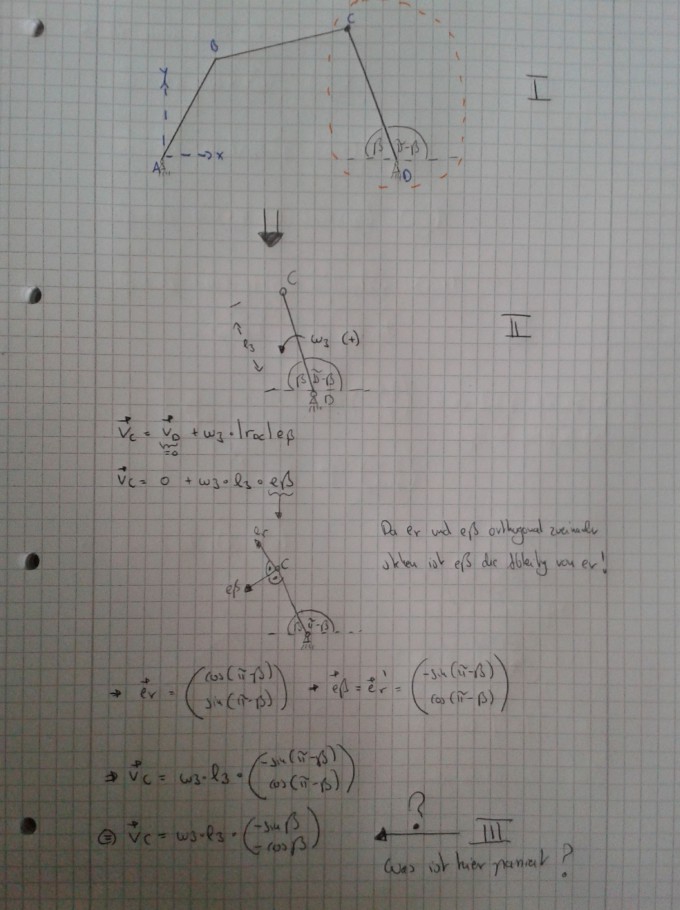 C
B
y
I
β
π-β
A
x
D
C
II
ω₃ (+)
l₃
β
π-β
D
v⃗c = v⃗D + ω₃ · |rDC| eβ
=0
v⃗c = 0 + ω₃ · l₃ · eβ
er
Da er und eβ orthogonal zueinander
stehen ist eβ die Ableitg von er!
C
eβ
β
π-β
→ e⃗r = (cos(π-β) sin(π-β)) → e⃗β = e⃗r' = (-sin(π-β) cos(π-β))
⇒ v⃗c = ω₃ · l₃ · (-sin(π-β) cos(π-β))
?
⇔ v⃗c = ω₃ · l₃ · (-sinβ -cosβ)
III
Was ist hier passiert?